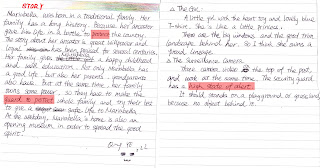 STORY
Marinbella, was born in a traditional family. Her
family has a long history. Because her ancestor
gave his life in a battle to protect the country.
The story about her ancestor is great milpower and
legal has been praised for several centuries.
Her family gives her a happy childhood
and well education. Not only Marinbella has
a good life, but also her parents, grandparents
also have. But at the same time, her family
owns some power, so they have to make the
guard to protect whole family and try their best
to give a safe life to Marinbella.
At the holiday, Marinbella's home is also an
opening museum in order to spread the good
spirit.
1. The Girl.
A little girl with the heart bag and lovely blue
T-shirt. She is like a little princess.
There are the big windows and the good trim
landscape behind her. So I think she owns a
proud lineage.
2. The Surveillance Camera
There camera inlay the top of the post,
and work at the same time. The security guard
has a high state of alert.
It should stands on a playground or grassland,
because no object behind it.